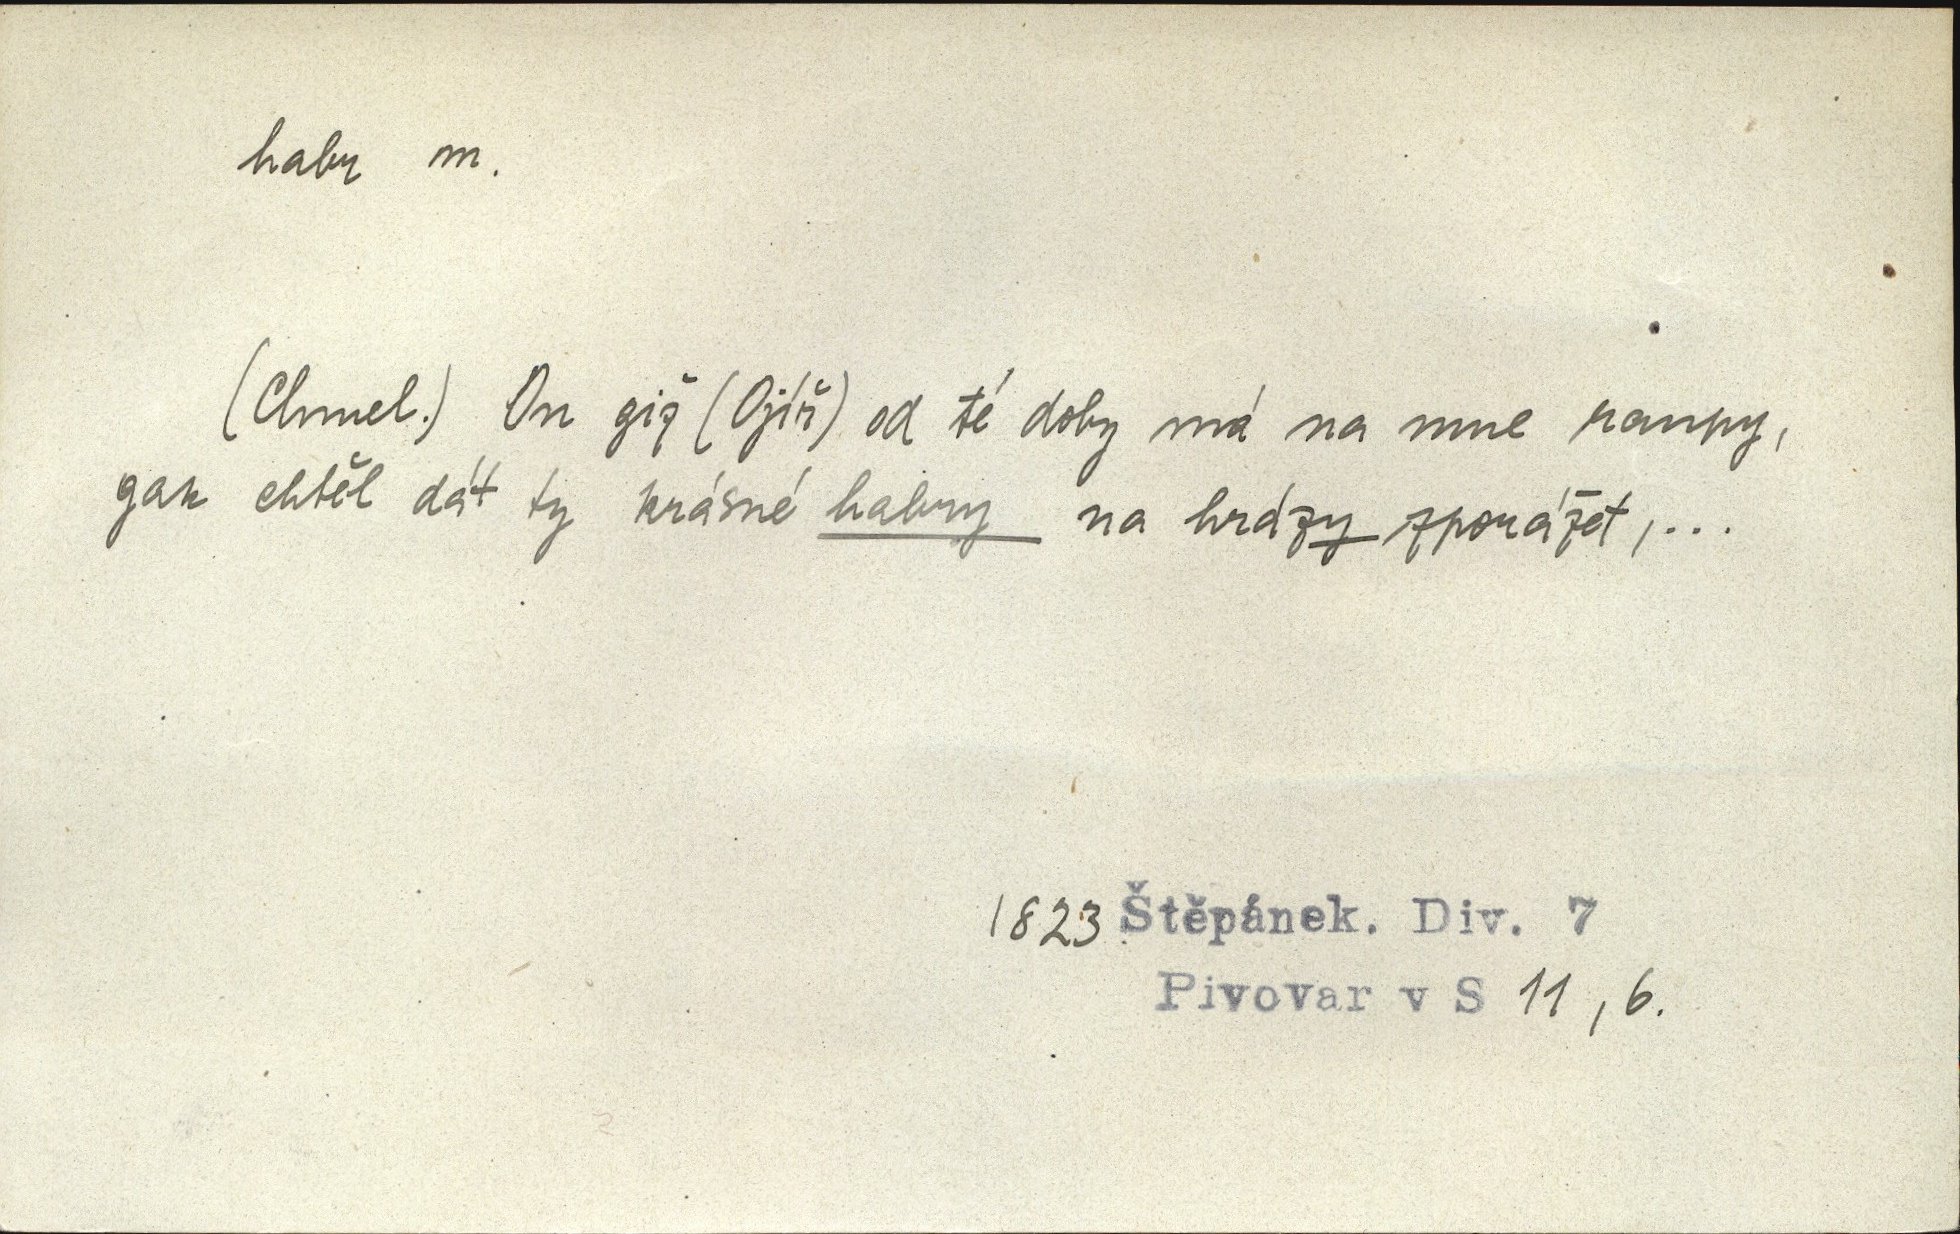 habr m.
(Chmel.) On giž (Ojíř) od té doby má na mne raupy,
gak chtěl dát ty krásné habry na hrázy zporážet,...
1823 Štěpánek. Div. 7
Pivovar v S 11, 6.